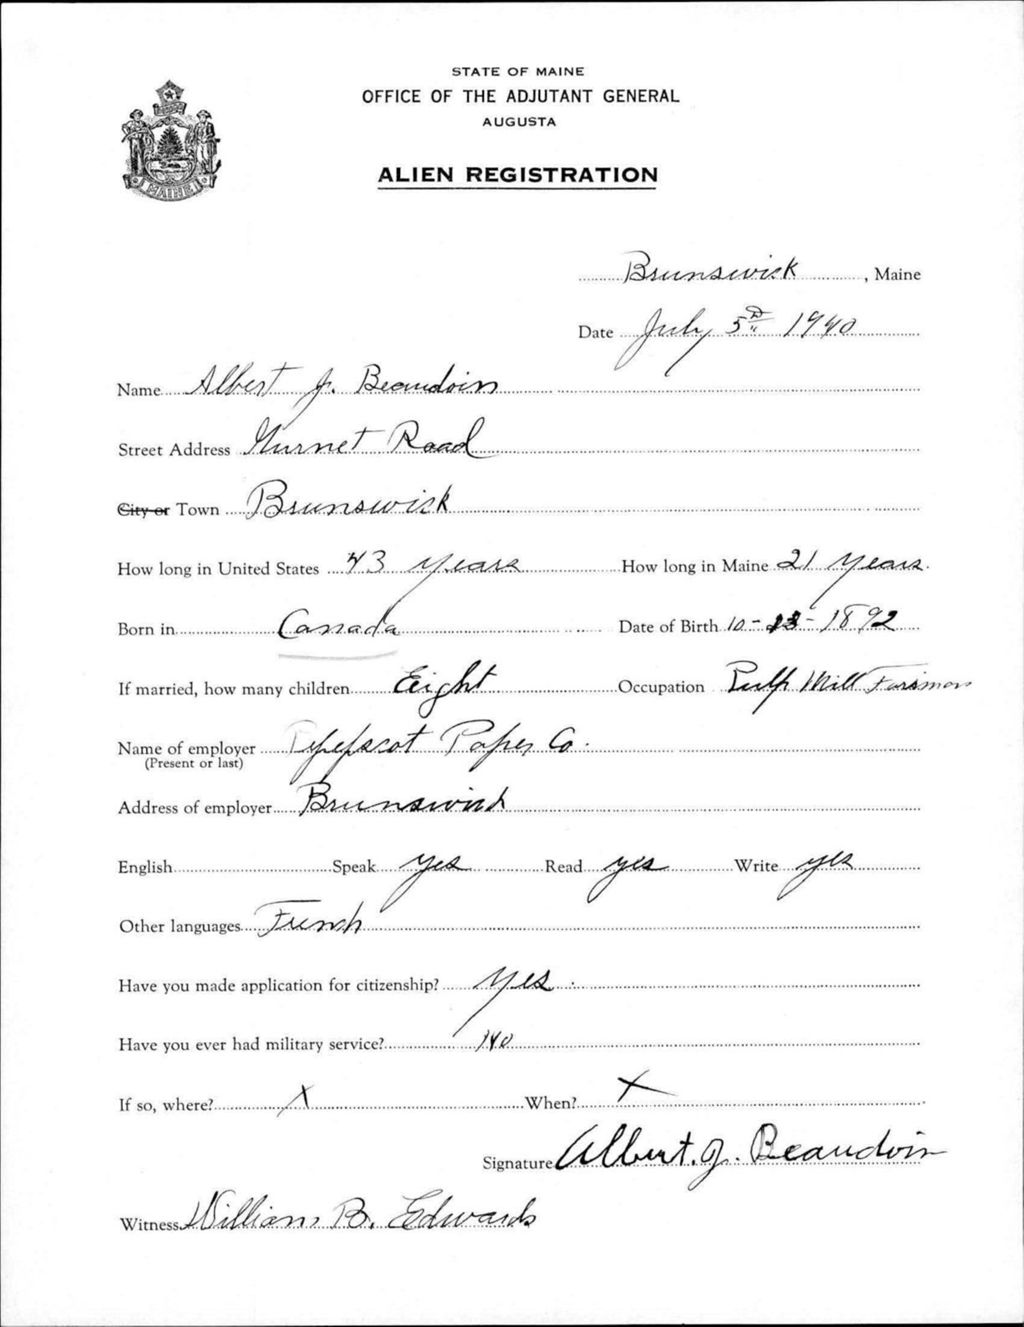 STATE OF MAINE
OFFICE OF THE ADJUTANT GENERAL
AUGUSTA
ALIEN REGISTRATION
MAINE
Brunswick, Maine
Date July 5th 1940
Name Albert J. Beaudoin
Street Address Gurnet Road
City or Town Brunswick
How long in United States 43 years How long in Maine 21 years.
Born in Canada Date of Birth 10-23-1892
If married, how many children Eight Occupation Pulp Mill Foreman
Name of employer Pejepscot Paper Co.
(Present or last)
Address of employer Brunswick
English Speak yes Read yes Write yes
Other languages French
Have you made application for citizenship? Yes
Have you ever had military service? No
If so, where? X When? X
Signature Albert. J. Beaudoin
Witness William B. Edwards